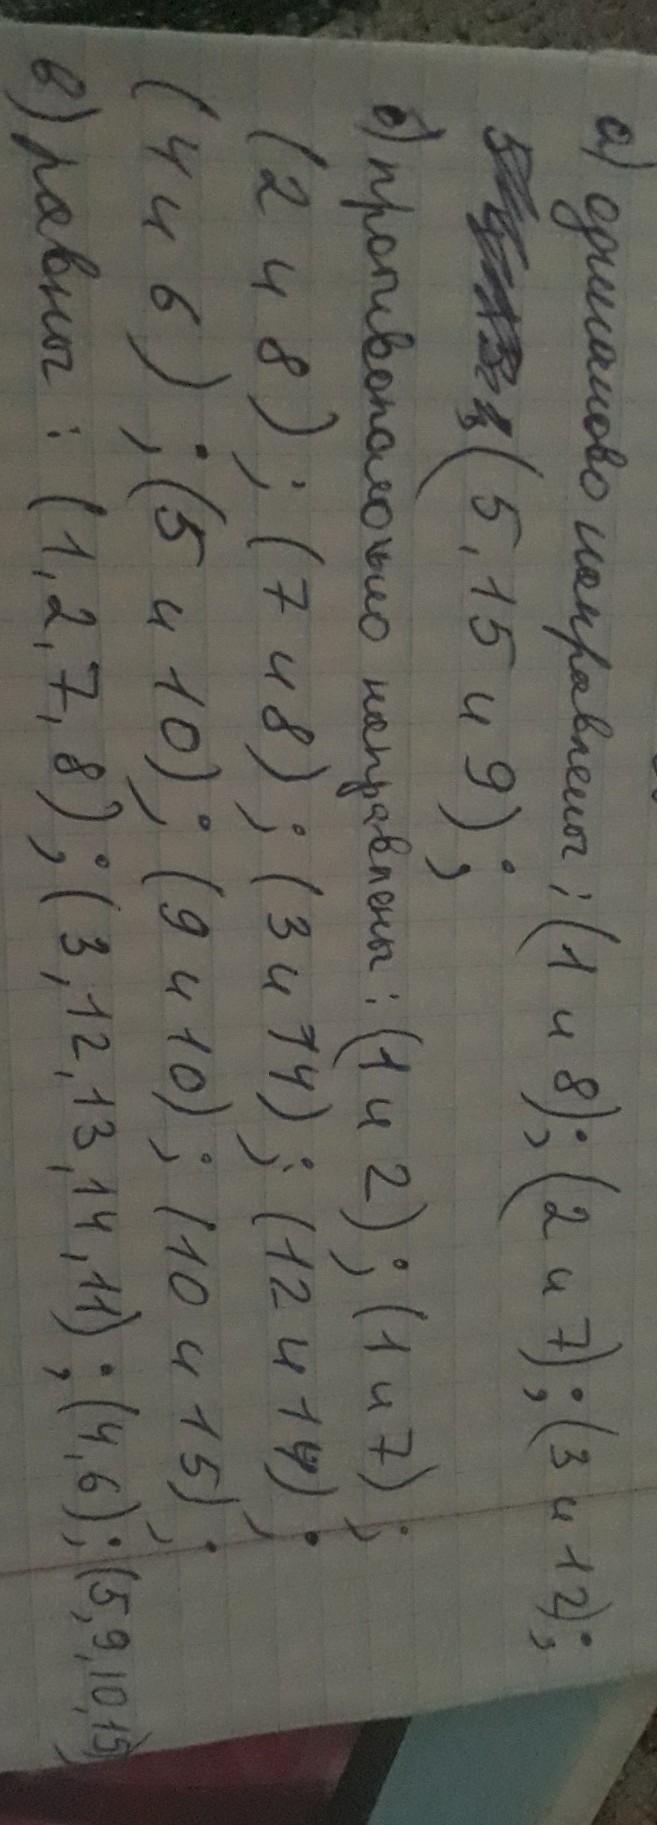 а) одинаково направлены: (1 и 8); (2 и 7); (3 и 12);
(5, 15 и 9);
б) противоположно направлены: (1 и 2); (1 и 7);
(2 и 8); (7 и 8); (3 и 14); (12 и 14);
(4 и 6); (5 и 10); (9 и 10); (10 и 15);
в) равны: (1, 2, 7, 8); (3, 12, 13, 14, 11); (4, 6); (5, 9, 10, 15)